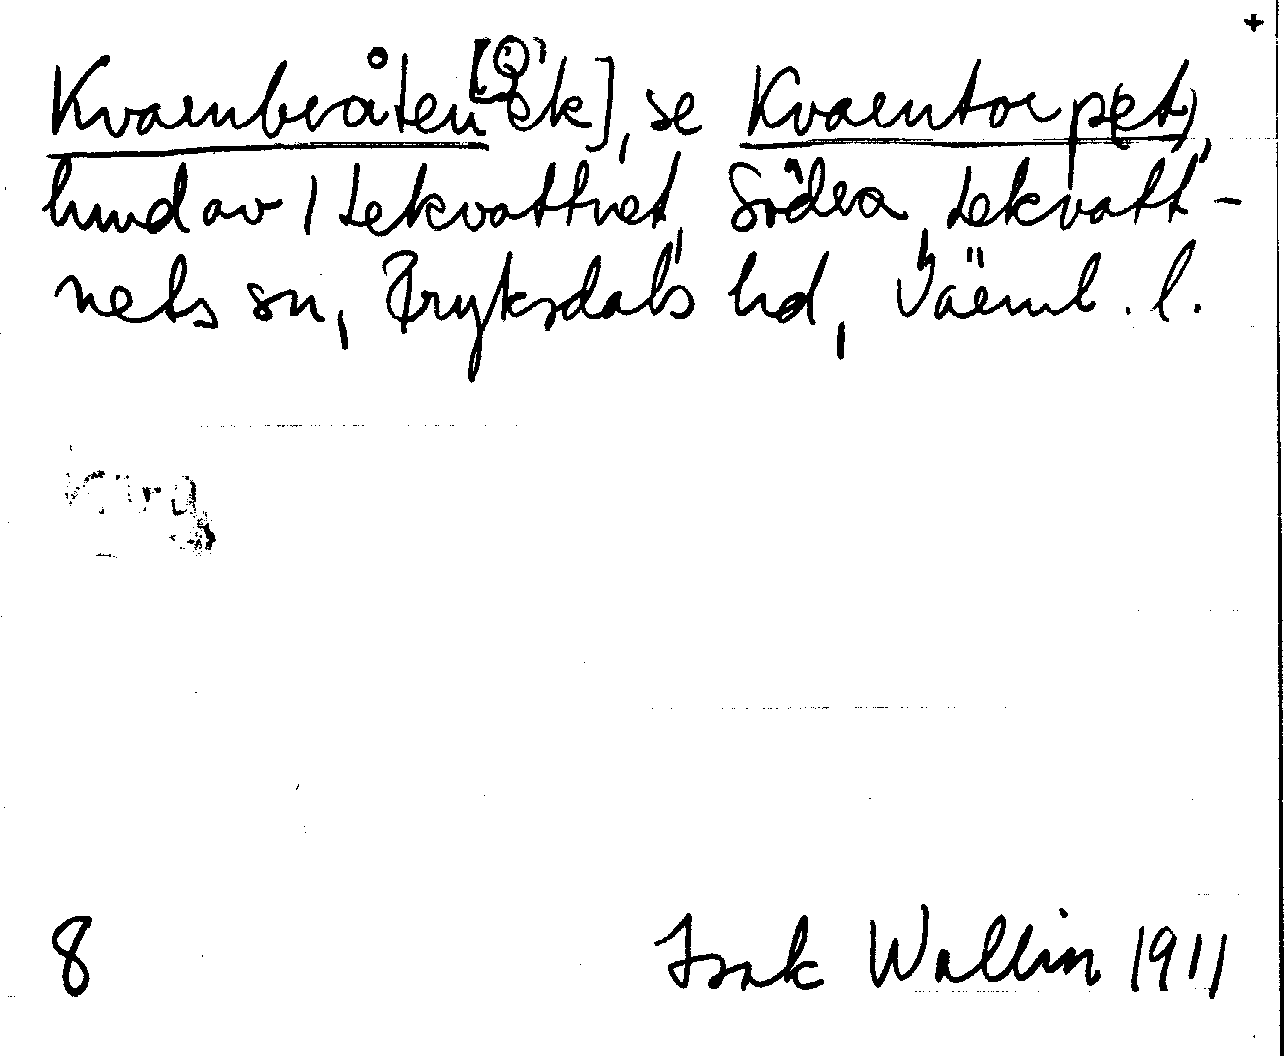 +
Kvarnbråten [Ö ek], se Kvarntorp(et),
hmd av 1 Lekvattnet, Södra, Lekvatt-
nets sn, Fryksdals hd, Värml. l.
8 Isak Wallin 1911